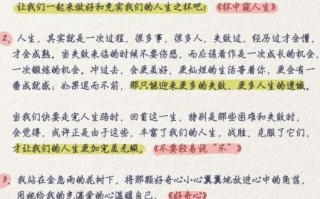 让我们一起来做好和充实我们的人生之杯吧!《杯中窥人生》
2、人生,其实就是一次过程,很多事,很多人,失败过,轻历过才会懂,
才会成熟。当失败来临的时候不要伤感,而应该看作是一次成长的机会,
一次锻炼的机会。冲过去,会更美好,更灿烂的生活等着你,更会有一
番成就感;如果退而不前,那只能迎来更多的失败,更多人生的遗憾。
当我们快要走完人生路时,回首这一生,特别是那些困难和失败时,
会觉得,或许正是由于这些,丰富了我们的人生,战胜,克服了它们,
才让我们的人生更加完美无瑕。《不要轻易说“不”》
3、我站在金急雨的花树下,将那颗好奇心小心翼翼地放进心中的角落,
用她给我的充满爱的心温暖自己。《好奇心》